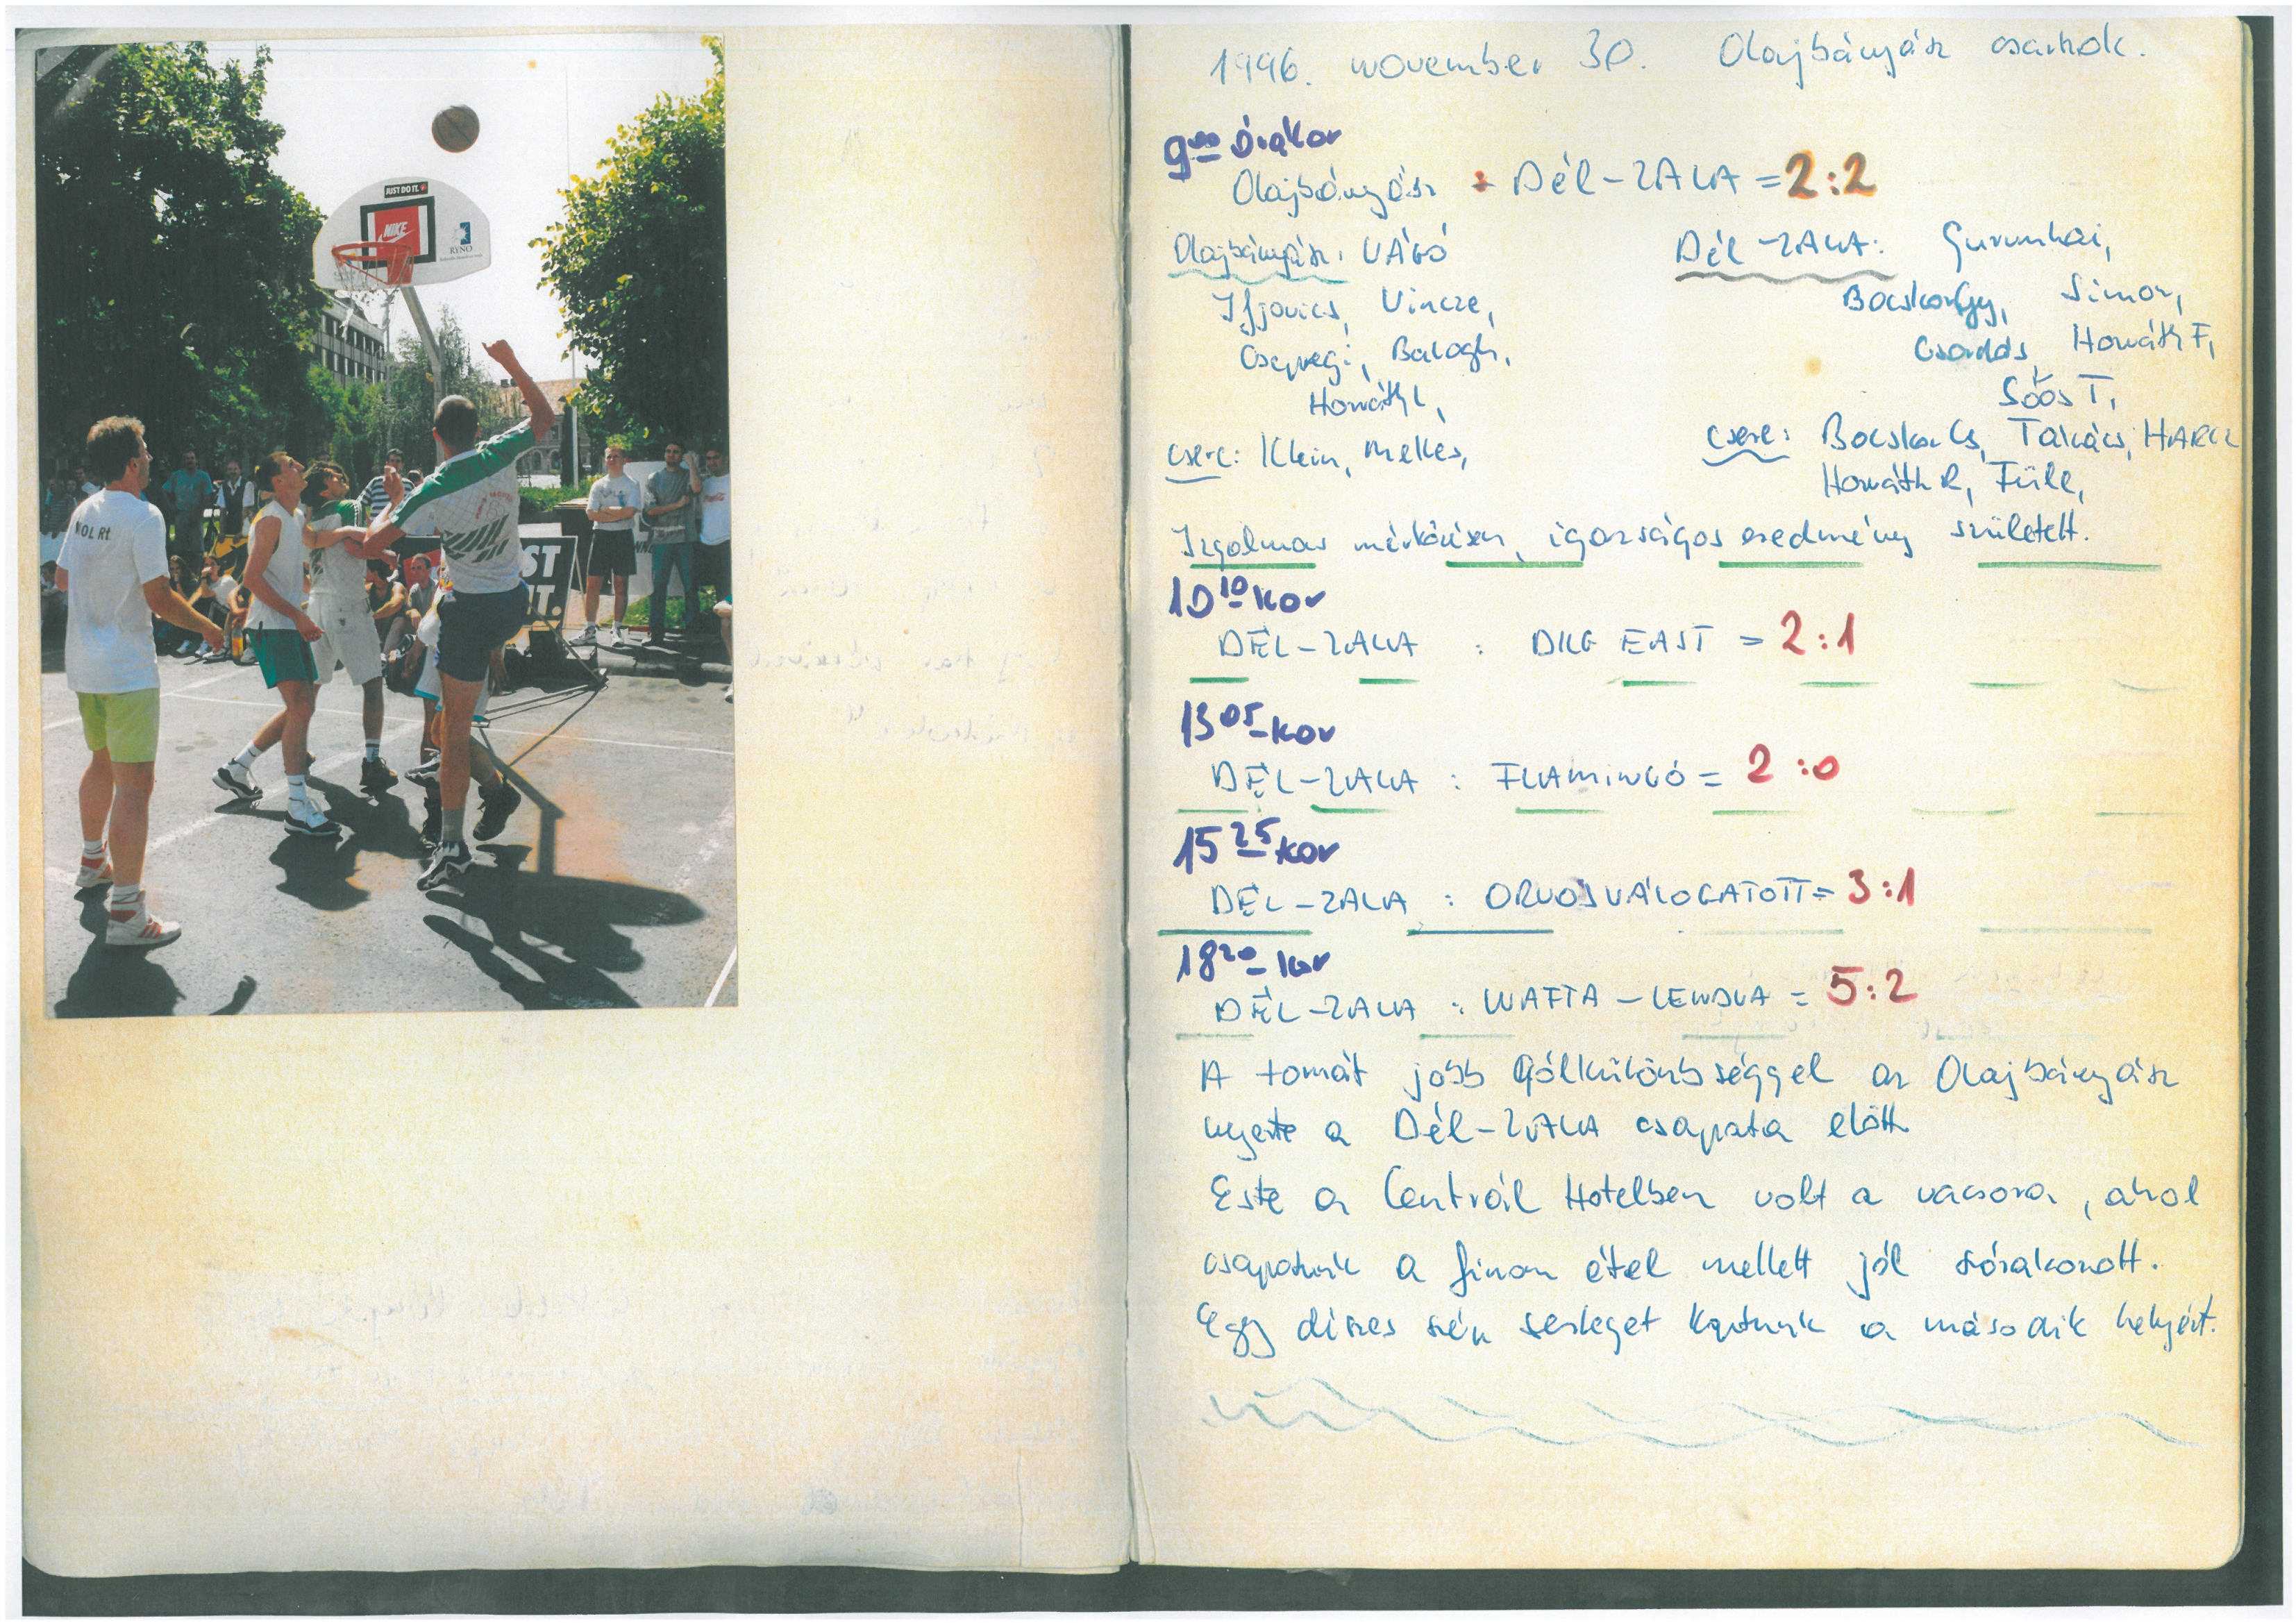 JUST DO IT.
NIKE
RYNO
MOL Rt
ST
IT.
1996. november 30. Olajbányász csarnok.
9⁰⁰ órakor
Olajbányász : Dél-ZALA = 2:2
Olajbányász: VÁGÓ
Ifjovics, Vincze,
Csepregi, Balogh,
Horváth L,
Csere: Klein, Mellés,
Dél-ZALA:
Bocskor Gy, Simon,
Csordás, Horváth F,
Soós T,
Csere: Bocskor Cs, Takács, HARCZ
Horváth R, Füle,
Izgalmas mérkőzésen, igazságos eredmény született.
10¹⁰-kor
DÉL-ZALA : DKG EAST = 2:1
13⁰⁵-kor
DÉL-ZALA : FLAMINGÓ = 2:0
15²⁵-kor
DÉL-ZALA : ORVOSVÁLOGATOTT = 3:1
18²⁰-kor
DÉL-ZALA : NAFTA-LENDVA = 5:2
A tornát jobb gólkülönbséggel az Olajbányász
nyerte a Dél-ZALA csapata előtt
Este a Centrál Hotelben volt a vacsora, ahol
csapatunk a finom étel mellett jól szórakozott.
Egy díszes szép serleget kaptunk a második helyért.